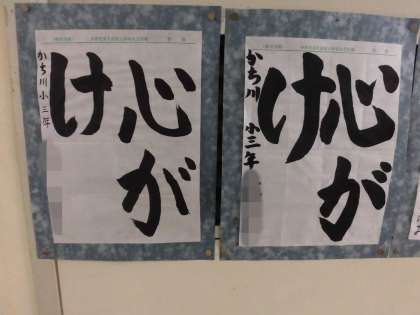 心が
け
かち川 小三年
心が
け
かち川 小三年